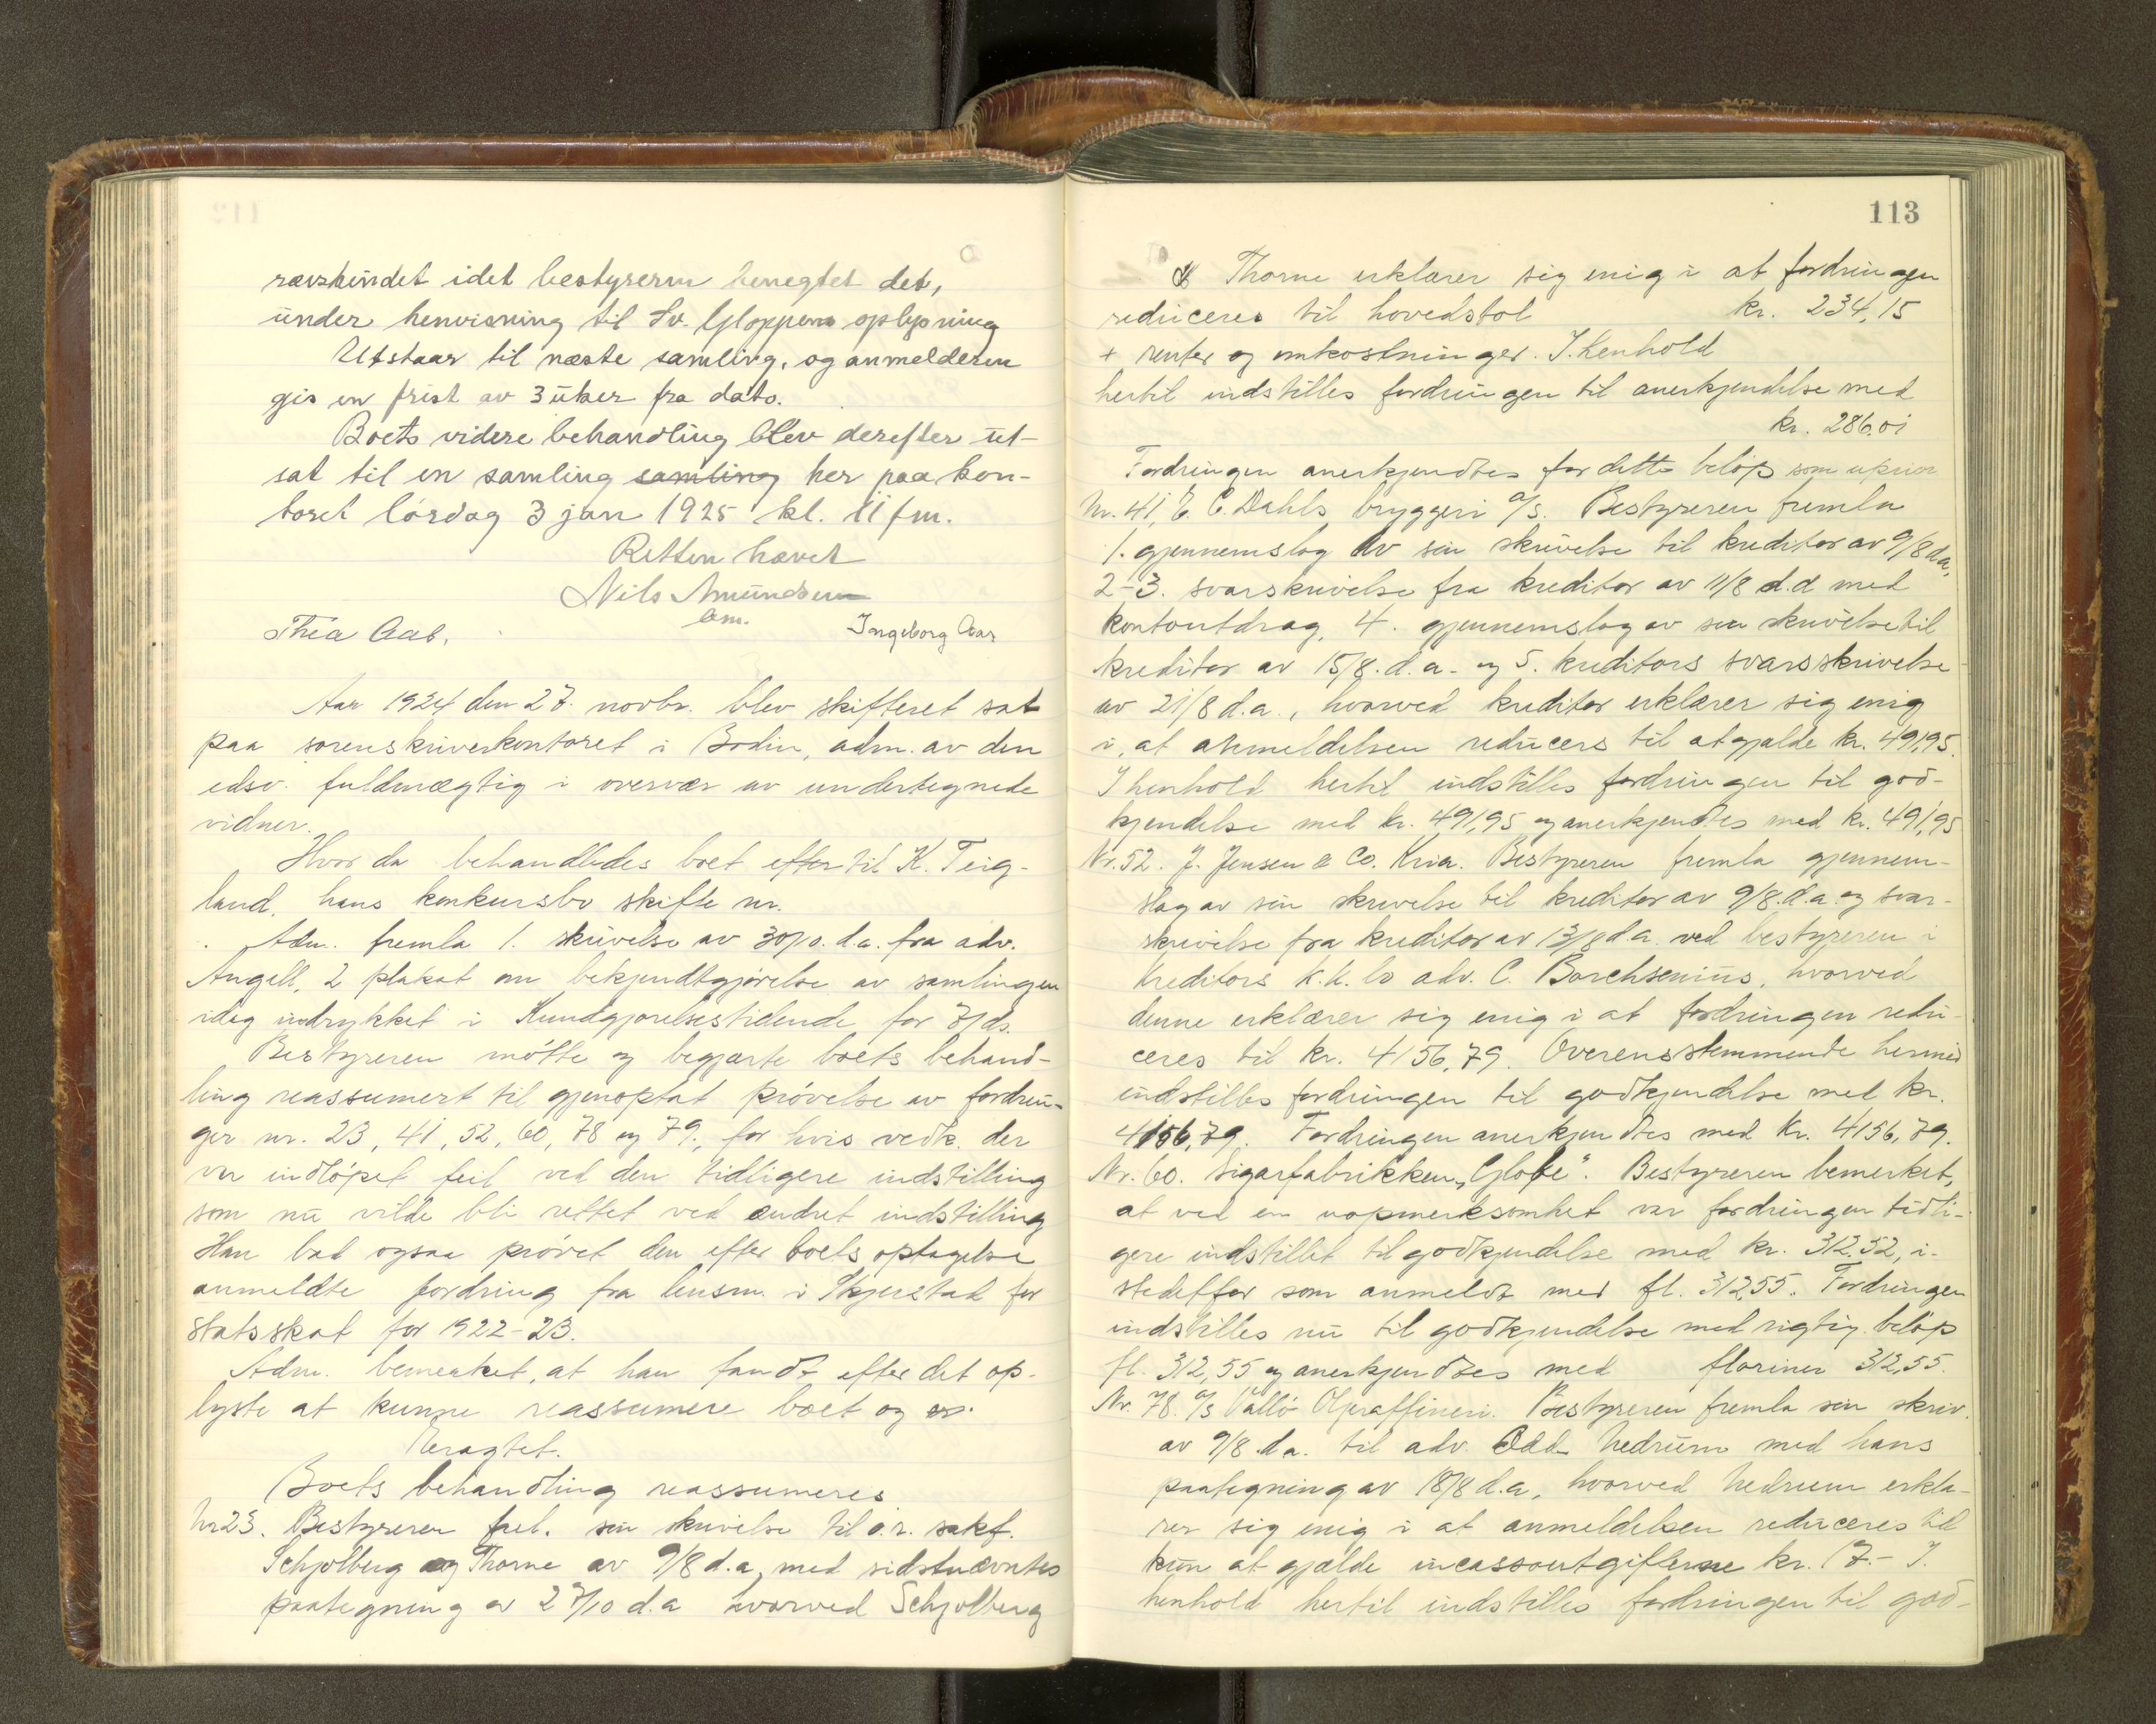 rævskindet idet bestyreren benegtet det,
under henvisning til Sv. Gloppens oplysning
Utstaar til næste samling, og anmelderen
gis en frist av 3 uker fra dato.
Boets videre behandling blev derefter ut-
sat til en samling samling her paa kon-
toret lørdag 3 jan 1925 kl. 11 fm.
Retten hævet
Nils Amundsen
Thea Aab. Ingeborg Aas
Aar 1924 den 27. novbr. blev skifteret sat
paa sorenskriverkontoret i Bodin, adm. av den
edsv. fuldmægtig i overvær av undertegnede
vidner.
Hvor da behandledes boet efter til K. Teig-
land, hans konkursbo skifte nr.
Adm. fremla 1. skrivelse av 30/10. d.a. fra adv.
Angell, 2 plakat om bekjendtgjørelse av samlingen
idag indrykket i Kundgjørelsestidende for 7/ds.
Bestyreren møtte og begjærte boets behand-
ling reassumert til gjenoptat prøvelse av fordrin-
ger nr. 23, 41, 52, 60, 78 og 79., for hvis vedk. der
var indløpet feil ved den tidligere indstilling
som nu vilde bli rettet ved ændret indstilling
Han bad ogsaa prøvet den efter boets optagelse
anmeldte fordring fra lensm. i Skjerstad for
statsskat for 1922-23.
Adm. bemerket, at han fandt efter det op-
lyste at kunne reassumere boet og er.
Eragtet.
Boets behandling reassumeres
Nr 23. Bestyreren frel. sin skrivelse til o.r. sakf.
Schjølberg og Thorne av 9/8 d.a, med sidstnævntes
paategning av 27/10 d.a hvorved Schjølberg
113
& Thorne erklærer sig enig i at fordringen
reduceres til hovedstol kr. 234,15
+ renter og omkostninger. I henhold
hertil indstilles fordringen til anerkjendelse med
kr. 286.01
Fordringen anerkjendtes for dette beløp som uprior
Nr. 41, E. C. Dahls bryggeri A/S. Bestyreren fremla
1. gjennemslag av sin skrivelse til kreditor av 9/8 d.a,
2-3. svarskrivelse fra kreditor av 11/8 d.d med
kontoutdrag, 4. gjennemslag av sin skrivelse til
kreditor av 15/8. d.a. og 5. kreditors svarsskrivelse
av 21/8 d.a., hvorved kreditor erklærer sig enig
i, at anmeldelsen reducers til at gjælde kr. 491,95.
I henhold hertil indstilles fordringen til god-
kjendelse med kr. 491,95 og anerkjendtes med kr. 491,95
Nr. 52. J. Jensen & Co. Kria. Bestyreren fremla gjennem-
slag av sin skrivelse til kreditor av 9/8. d.a. og svar-
skrivelse fra kreditor av 13/8 d.a. ved bestyreren i
kreditors k.k. bo adv. C. Borchsenius, hvorved
denne erklærer sig enig i at fordringen redu-
ceres til kr. 4156,79. Overensstemmende hermed
indstilles fordringen til godkjendelse med kr.
4156,79. Fordringen anerkjendtes med Kr. 4156,79.
Nr. 60. Sigarfabrikken „Globe". Bestyreren bemerket,
at ved en uopmerksomhet var fordringen tidli-
gere indstillet til godkjendelse med kr. 312,52, i-
stedetfor som anmeldt med fl. 312,55. Fordringen
indstilles nu til godkjendelse med rigtig beløp
fl. 312,55 og anerkjendtes med floriner 312,55.
Nr. 78. A/S Vallö Oljeraffineri. Bestyreren fremla sin skriv.
av 9/8. d.a. til adv. Odd Hedrum med hans
paategning av 18/8 d.a, hvorved Hedrum erklæ-
rer sig enig i at anmeldelsen reduceres til
kun at gjælde incassoutgifterne kr. 17.- I.
henhold hertil indstilles fordringen til god-